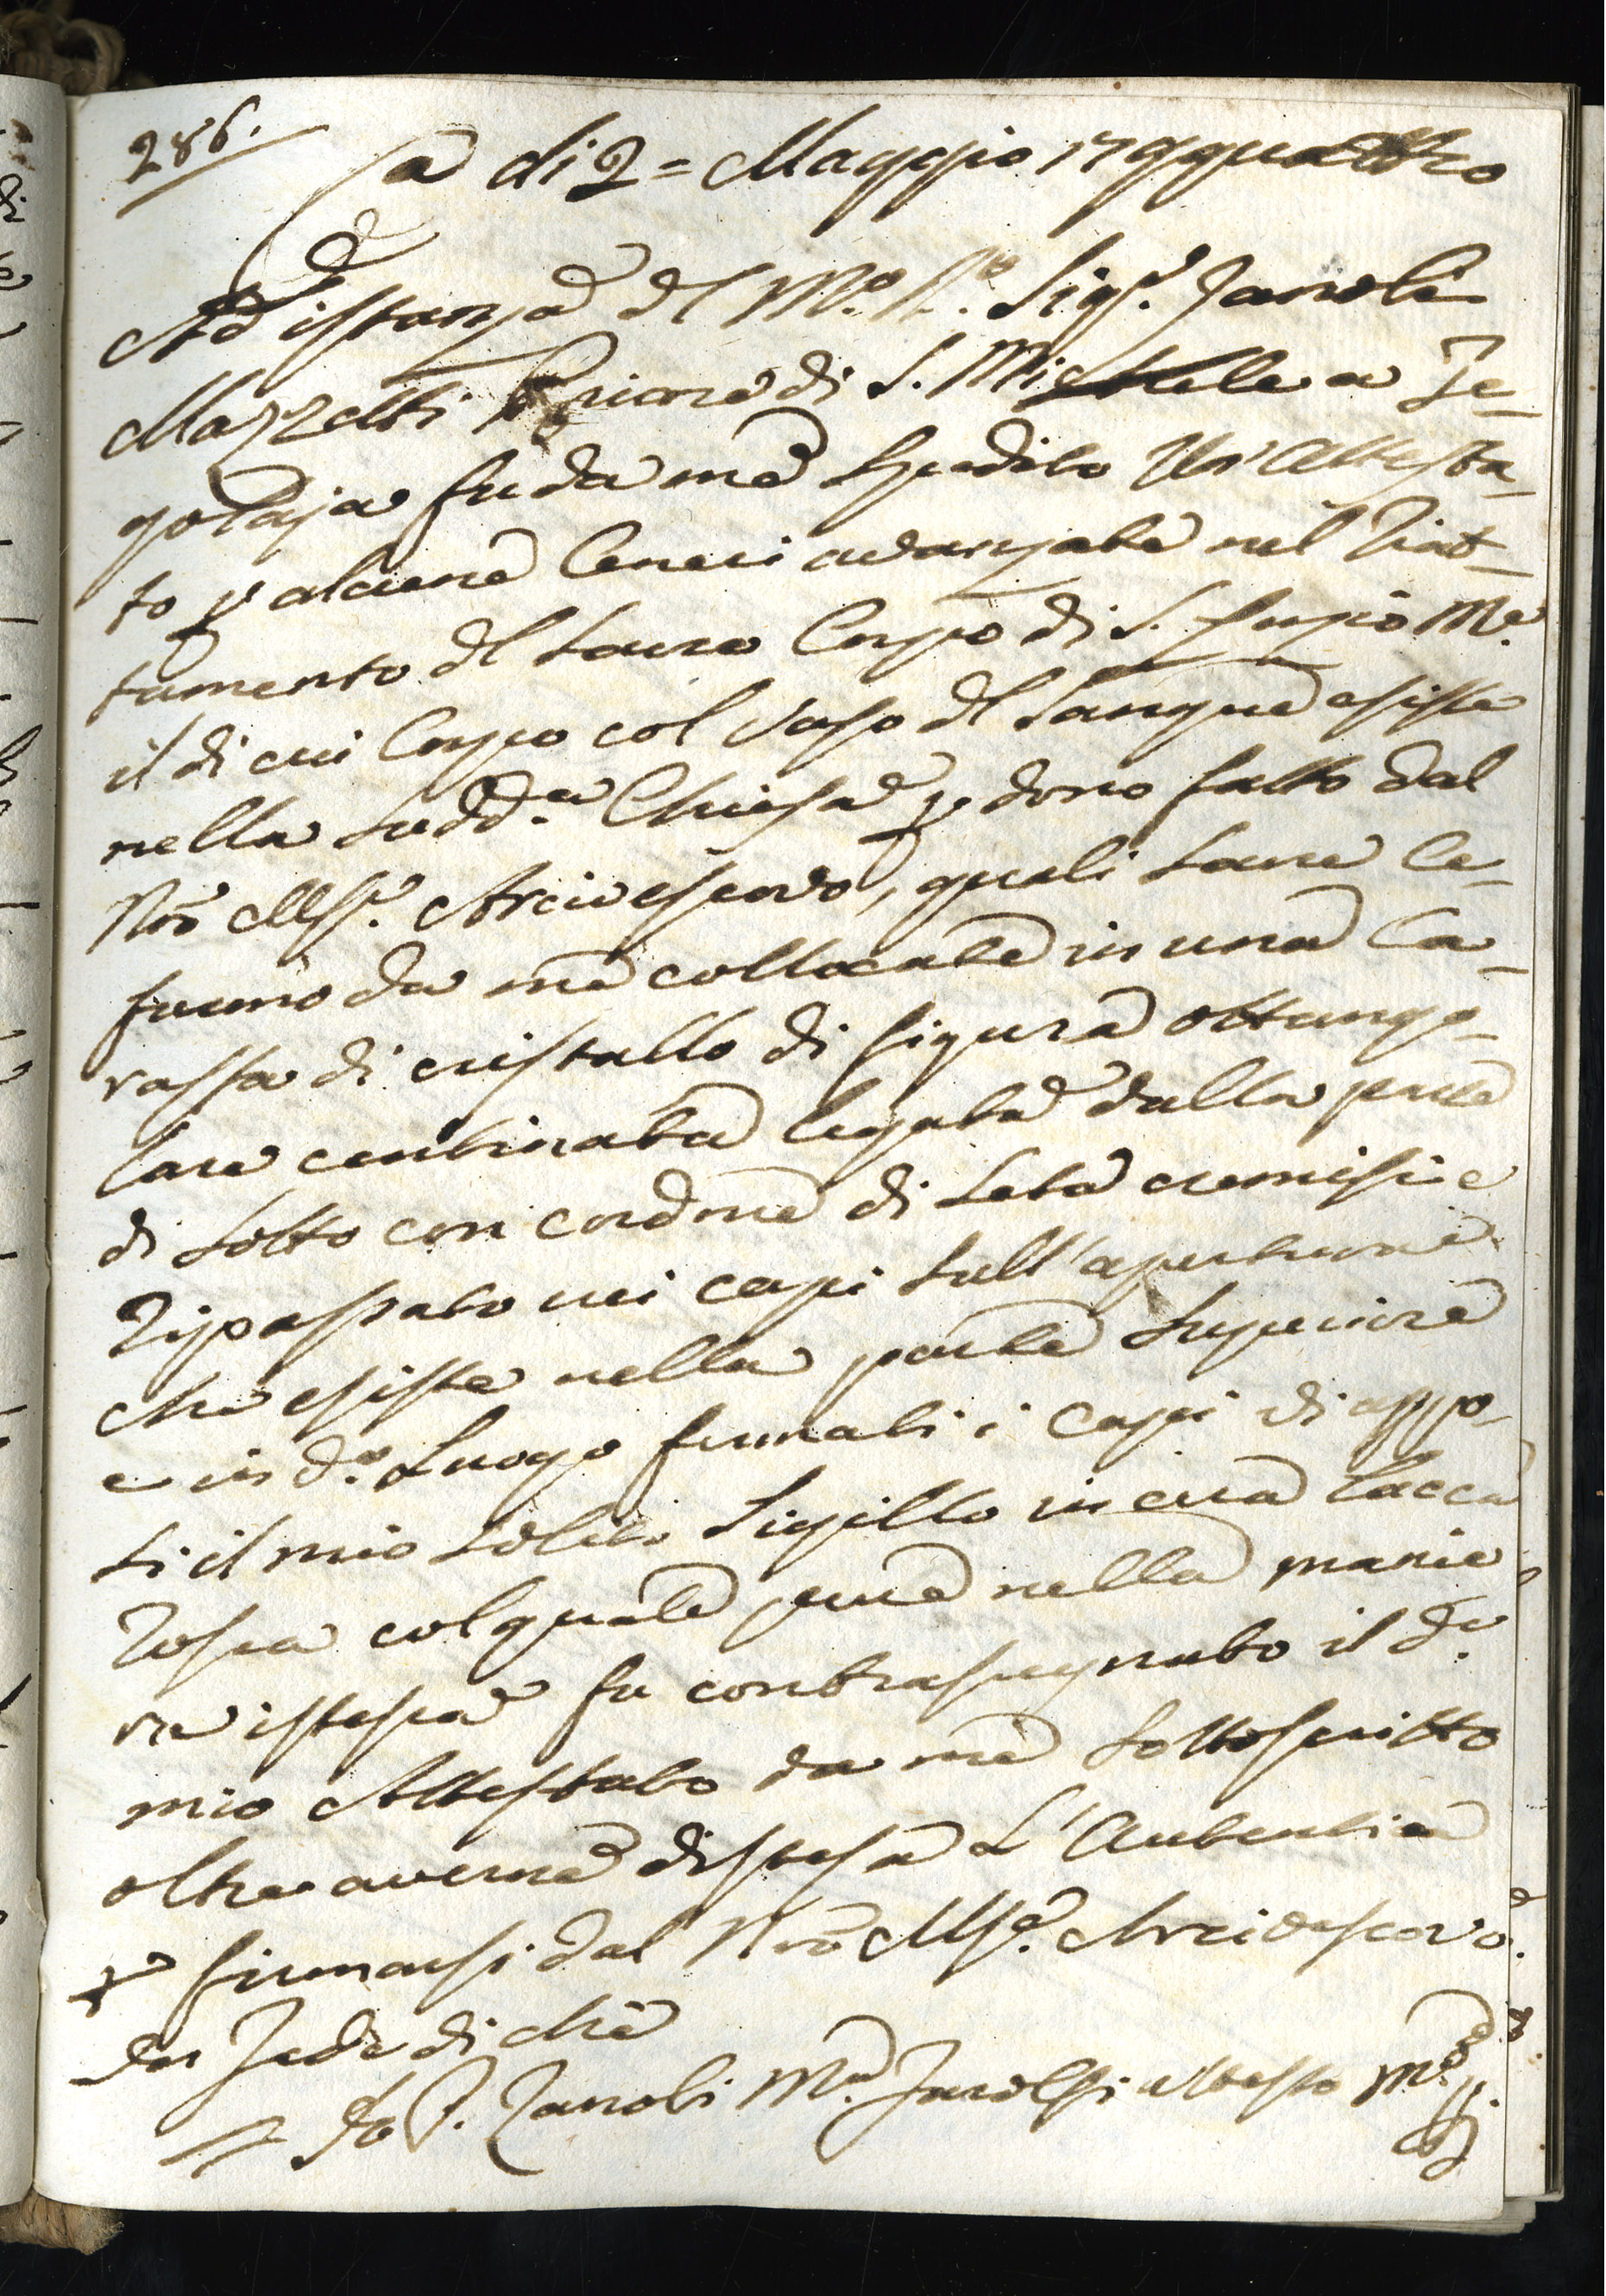 286.
a di 2 = Maggio 179quattro
Ad istanza dl M.o R.o Sig.e Zanobi
Mazzetti Priore di S. Michele a Te-
golaja fu da me spedito Un' Attesta-
to p alcune Ceneri avanzate nel Riat-
tamento dl Sacro Corpo di S. M.e
il di cui Corpo col Vaso dl Sangue esiste
nella Sudd.a Chiesa p dono fatto dal
Nro Msg.e Arcivescovo, quali Sacre Ce-
furno da me collocate in una Ca-
rassa di cristallo di figura ottango-
lare centinata legata dalla parte
di Sotto con cordone di Seta cremisi e
Ripassato nei capi sull' apertura
che esiste nella parte Superiore
e in d.o Luogo fermati i Capi vi appo-
si il mio Solito Sigillo in cera lacca
Rossa col quale pure nella manie
ra istessa fu contrassegnato il d.o
mio Attestato da me Sottoscritto
oltre averne distesa L' Autentica
p firmarsi dal Nro Msg.e Arcivescovo.
In Fede di che
Io P. Zanobi M.a attesto M.o pp.